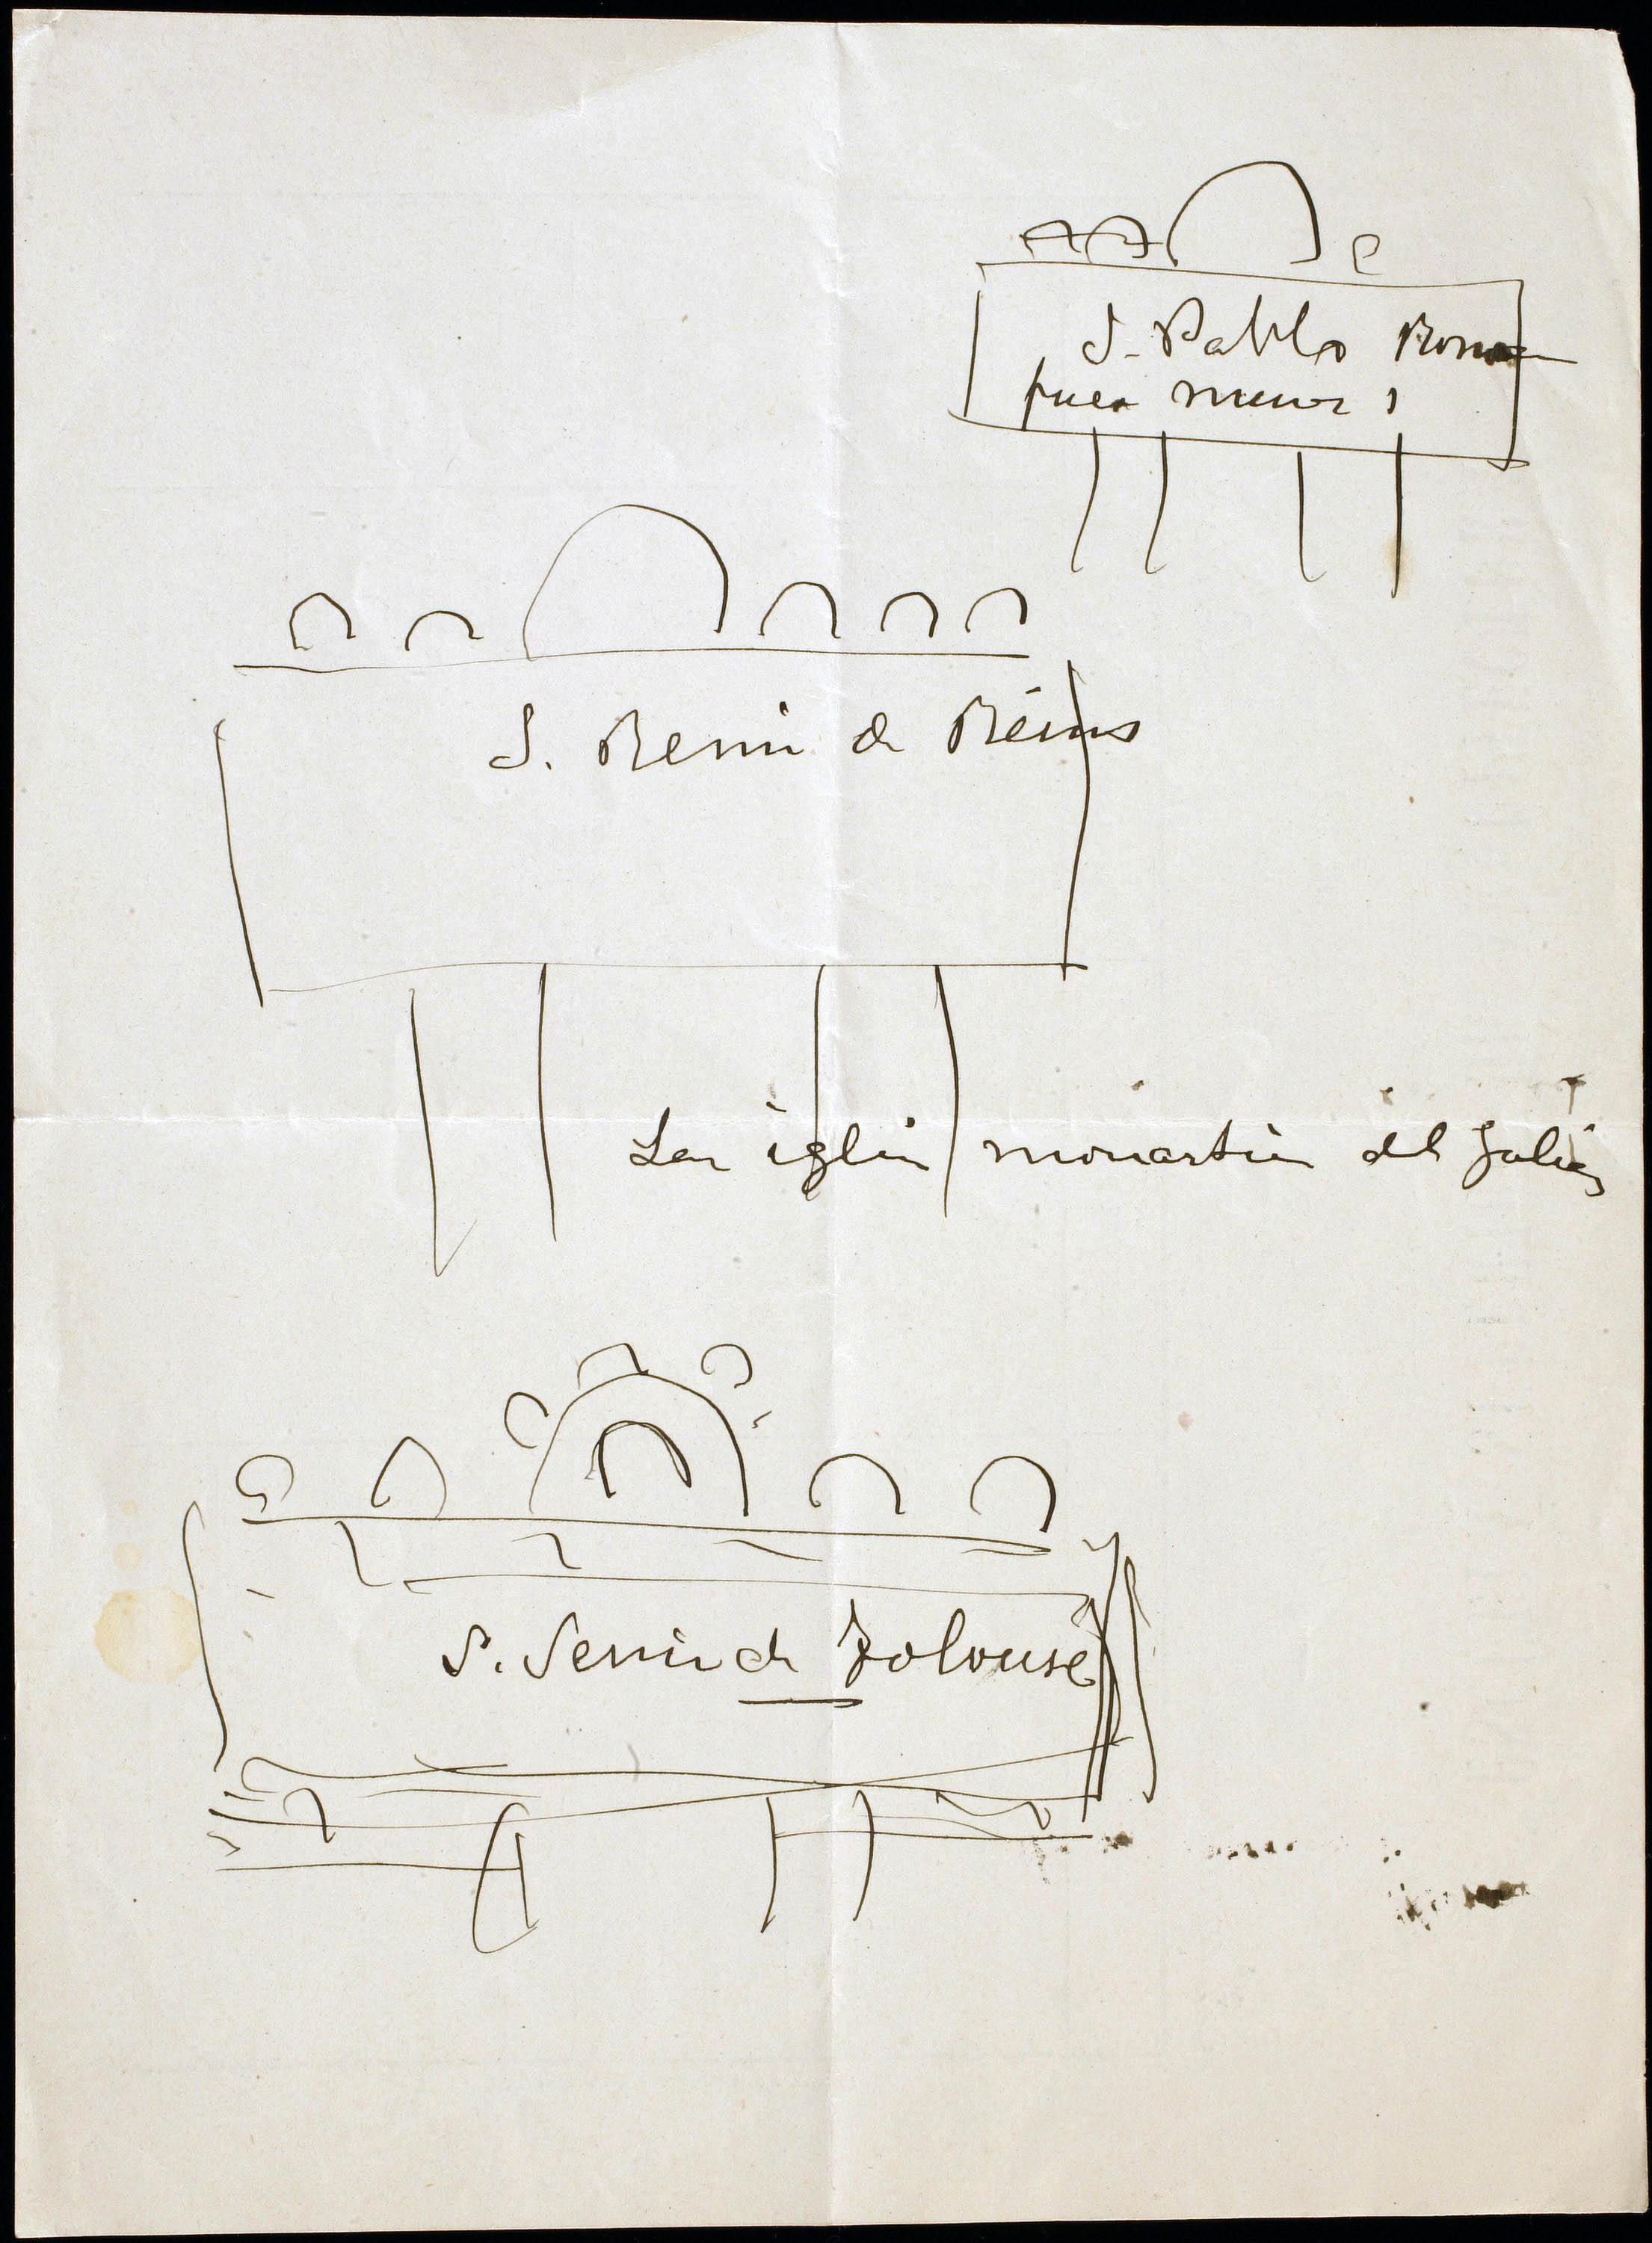 S. Pablo Roma
fuera muros
S. Remi de Réims
Las iglesias monasterios del
S. Sernin de Tolouse